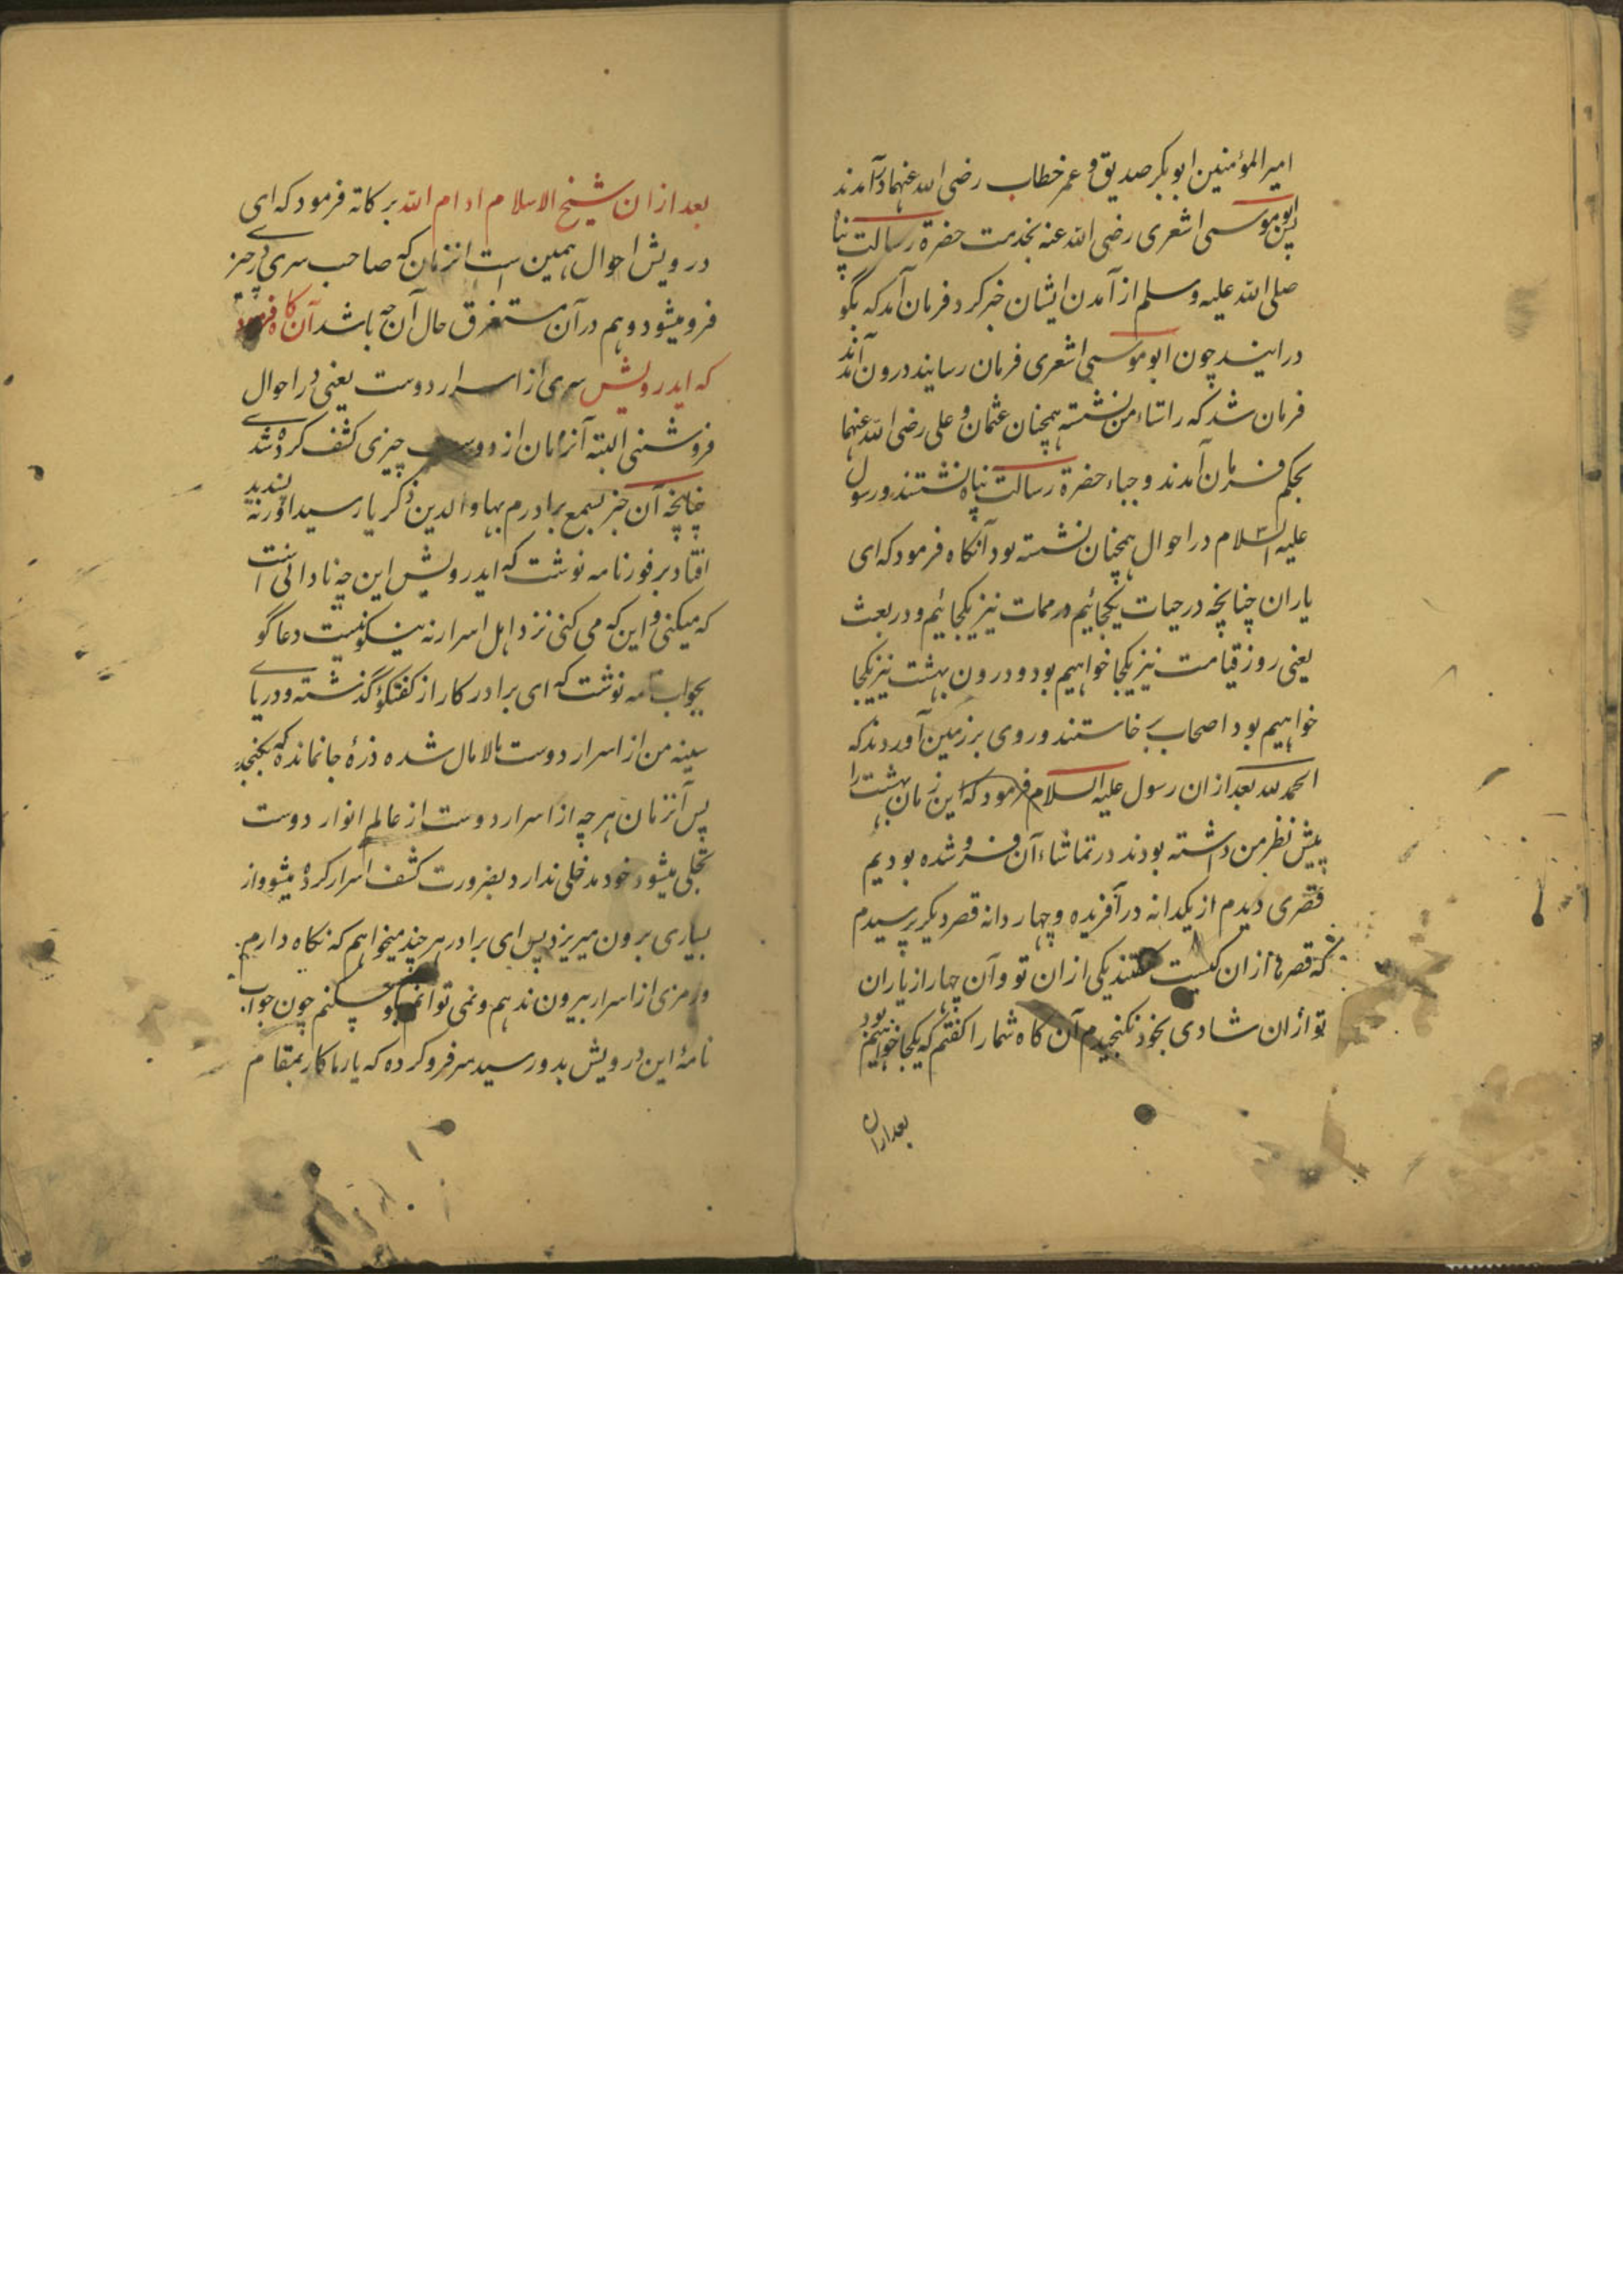 امیرالمؤمنین ابوبکر صدیق و عمر خطاب رضی الله عنهما درآمدند
پس ابوموسی اشعری رضی الله عنه بخدمت حضرة رسالت پناه
صلی الله علیه وسلم از آمدن ایشان خبر کرد فرمان آمد که بگو
درایند چون ابوموسی اشعری فرمان رسانید درون آمدند
فرمان شد که راستاء من نشسته همچنان عثمان و علی رضی الله عنهما
بحکم فرمان آمدند و جباء حضرة رسالت پناه نشستند و رسول
علیه السلام در احوال همچنان نشسته بود آنکاه فرمود که ای
یاران چنانچه در حیات یکجائیم در ممات نیز یکجائیم و در بعث
یعنی روز قیامت نیز یکجا خواهیم بود و درون بهشت نیز یکجا
خواهیم بود اصحاب خاستند و روی بر زمین آوردند که
الحمد لله بعد ازان رسول علیه السلام فرمود که این زمان بهشت را
پیش نظر من داشته بودند در تماشاء آن فرو شده بودیم
قصری دیدم از یکدانه در آفریده و چهار دانه قصر دیکر پرسیدم
که قصرها ازان کیست گفتند یکی ازان تو و آن چهار از یاران
تو ازان شادی بخود نکنجیدم آن کاه شما را کفتم که یکجا خواهیم بود
بعد ازان
بعد ازان شیخ الاسلام ادام الله برکاته فرمود که ای
درویش احوال همین است انزمان که صاحب سری در چیزی
فرو میشود و هم در آن مستغرق حال آن چه باشد آن کاه فرمود
که ایدرویش سری از اسرار دوست یعنی در احوال
فرو شنی البته آنزمان از دوست چیزی کشف کرده شد
چنانچه آن خبر بسمع برادرم بهاوالدین ذکریا رسید او را نه پسندید
افتاد بر فور نامه نوشت که ایدرویش این چه نادانی است
که میکنی و این که می کنی نزد اهل اسرار نه نیکو نیست دعاگو
بجواب نامه نوشت که ای برادر کار از کفتکو گذشته و دریای
سینه من از اسرار دوست مالامال شده ذرهٔ جا نمانده که بکنجد
پس آنزمان هر چه از اسرار دوست از عالم انوار دوست
تجلی میشود خود مدخلی ندارد بضرورت کشف اسرار کرده میشود از
بسیاری برون میریزد پس ای برادر هر چند میخواهم که نکاه دارم
و رمزی از اسرار بیرون ندهم و نمی توانم چکنم چون جواب
نامهٔ این درویش بدو رسید سر فرو کرده که یار ما کار بمقام